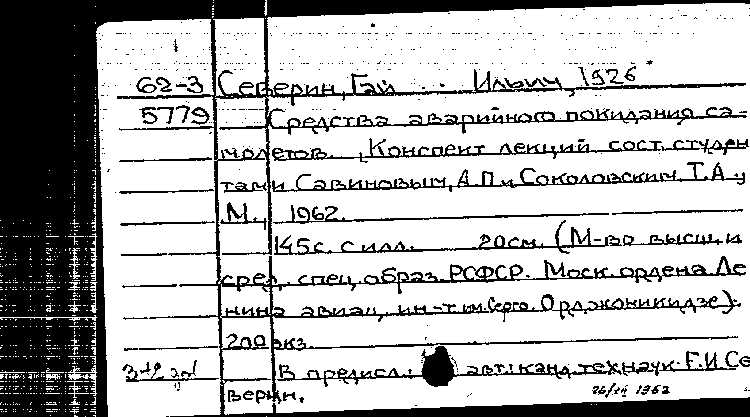 62-3 Северин, Гай Ильич, 1926
5779 Средства аварийного покидания са-
молетов. Конспект лекций сост. студен
тами Савиновым, А.П. и Соколовским, Т.А.
М., 1962.
145с. с илл. 20см. (М-во высш. и
сред. спец. образ. РСФСР. Моск. ордена Ле
нина авиац. ин-т им. Серго Орджоникидзе).
200 экз.
В предисл.: авт: канд. техн. наук Г.И. Се
верин. 1962